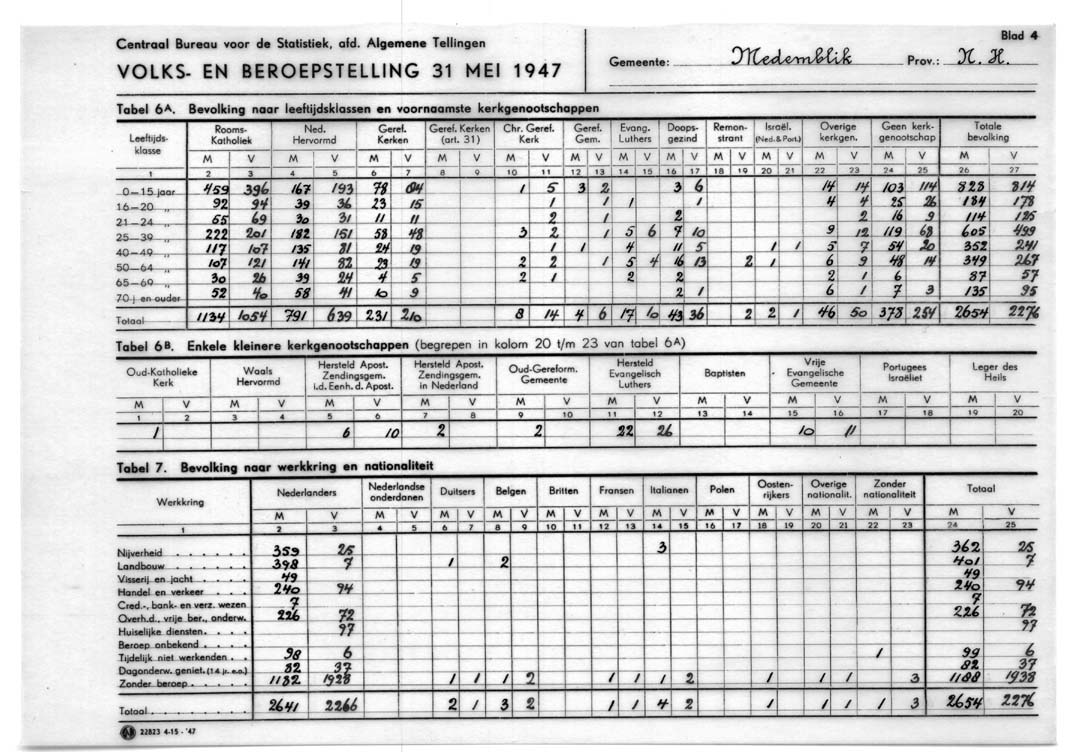 Blad 4
Centraal Bureau voor de Statistiek, afd. Algemene Tellingen
VOLKS- EN BEROEPSTELLING 31 MEI 1947
Gemeente: Medemblik Prov.: N. H.
Tabel 6A. Bevolking naar leeftijdsklassen en voornaamste kerkgenootschappen
Leeftijds- Rooms- Ned. Geref. Geref. Kerken Chr. Geref. Geref. Evang. Doops- Remon- Israël. Overige Geen kerk- Totale
klasse Katholiek Hervormd Kerken (art. 31) Kerk Gem. Luthers gezind strant (Ned.& Port.) kerkgen. genootschap bevolking
M V M V M V M V M V M V M V M V M V M V M V M V M V
1 2 3 4 5 6 7 8 9 10 11 12 13 14 15 16 17 18 19 20 21 22 23 24 25 26 27
0—15 jaar 459 396 167 193 78 84 1 5 3 2 3 6 14 14 103 114 828 814
16—20 „ 92 94 39 36 23 15 1 1 1 1 4 4 25 26 184 178
21—24 „ 55 69 30 31 11 11 2 1 2 2 16 9 114 125
25—39 „ 222 201 182 151 58 48 3 2 1 5 6 7 10 9 12 119 68 605 499
40—49 „ 117 107 135 81 24 19 1 1 4 11 5 1 1 5 7 54 20 352 241
50—64 „ 107 121 141 82 23 19 2 2 1 5 4 16 13 2 1 6 9 48 14 349 267
65—69 „ 30 26 39 24 4 5 2 1 2 2 2 1 6 87 57
70 j en ouder 52 40 58 41 10 9 2 1 6 1 7 3 135 95
Totaal 1134 1054 791 639 231 210 8 14 4 6 17 10 43 36 2 2 1 46 50 378 254 2654 2276
Tabel 6B. Enkele kleinere kerkgenootschappen (begrepen in kolom 20 t/m 23 van tabel 6A)
Oud-Katholieke Kerk Waals Hervormd Hersteld Apost. Zendingsgem. i.d. Eenh. d. Apost. Hersteld Apost. Zendingsgem. in Nederland Oud-Gereform. Gemeente Hersteld Evangelisch Luthers Baptisten Vrije Evangelische Gemeente Portugees Israëliet Leger des Heils
M V M V M V M V M V M V M V M V M V M V
1 2 3 4 5 6 7 8 9 10 11 12 13 14 15 16 17 18 19 20
1 6 10 2 2 22 26 10 11
Tabel 7. Bevolking naar werkkring en nationaliteit
Werkkring Nederlanders Nederlandse onderdanen Duitsers Belgen Britten Fransen Italianen Polen Oosten- rijkers Overige nationalit. Zonder nationaliteit Totaal
M V M V M V M V M V M V M V M V M V M V M V M V
1 2 3 4 5 6 7 8 9 10 11 12 13 14 15 16 17 18 19 20 21 22 23 24 25
Nijverheid . . . . . . 359 25 3 362 25
Landbouw . . . . . . 398 7 1 2 401 7
Visserij en jacht . . . . 49 49
Handel en verkeer . . . . 240 94 240 94
Cred.-, bank- en verz. wezen 7 7
Overh.d., vrije ber., onderw. 226 72 226 72
Huiselijke diensten. . . . 97 97
Beroep onbekend . . . .
Tijdelijk niet werkenden . . 98 6 1 99 6
Dagonderw. geniet. (14 jr. e.o.) 82 37 82 37
Zonder beroep. . . . . 1182 1928 1 1 1 2 1 1 1 2 1 1 1 3 1188 1938
Totaal . . . . . . . . 2641 2266 2 1 3 2 1 1 4 2 1 1 1 1 3 2654 2276
22823 4-15 - '47